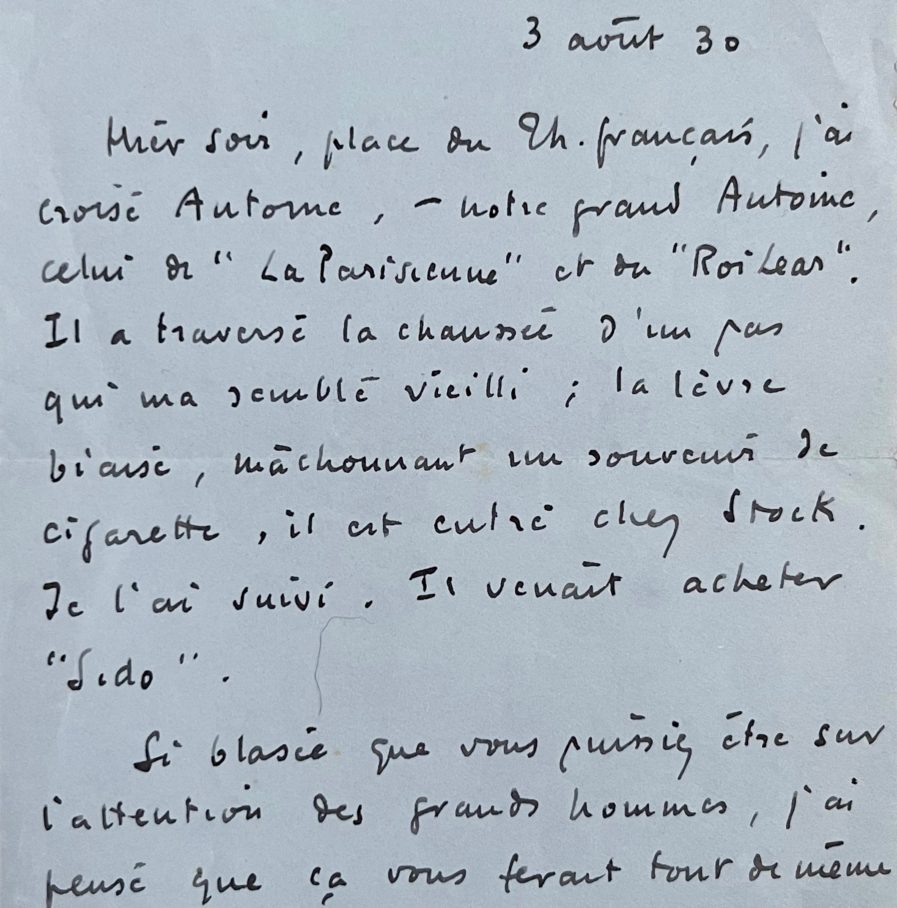 3 août 30
Hier soir, place du Th. français, j'ai
croisé Antoine, – notre grand Antoine,
celui de "La Parisienne" et du "Roi Lear".
Il a traversé la chaussée d'un pas
qui m'a semblé vieilli ; la lèvre
biaise, mâchonnant un souvenir de
cigarette, il est entré chez Stock.
Je l'ai suivi. Il venait acheter
"Sido".
Si blasée que vous puissiez être sur
l'attention des grands hommes, j'ai
pensé que ça vous ferait tout de même